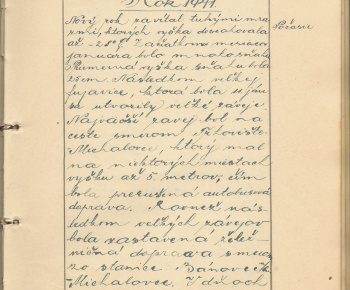 Rok 1941
Nový rok zavítal tuhými mra
zmi, ktorých výška dosahovala
Počasie
až -20°. Začiatkom mesiaca
januára bolo málo snehu
Priemerná výška snehu bola
20 cm. Následkom veľkej
fujavice, ktorá bola 
sa utvorily veľké záveje
Najväčší závej bol na
ceste smerom Trhovište-
Michalovce, ktorý mal
na niektorých miestach
výšku až 5 metrov, čím
bola prerušená autobusová
doprava. Rovnež nás-
ledkom veľkých závejov
bola zastavená želez-
ničná doprava smerom
zo stanice Bánovce n/O.
Michalovce. V dňoch